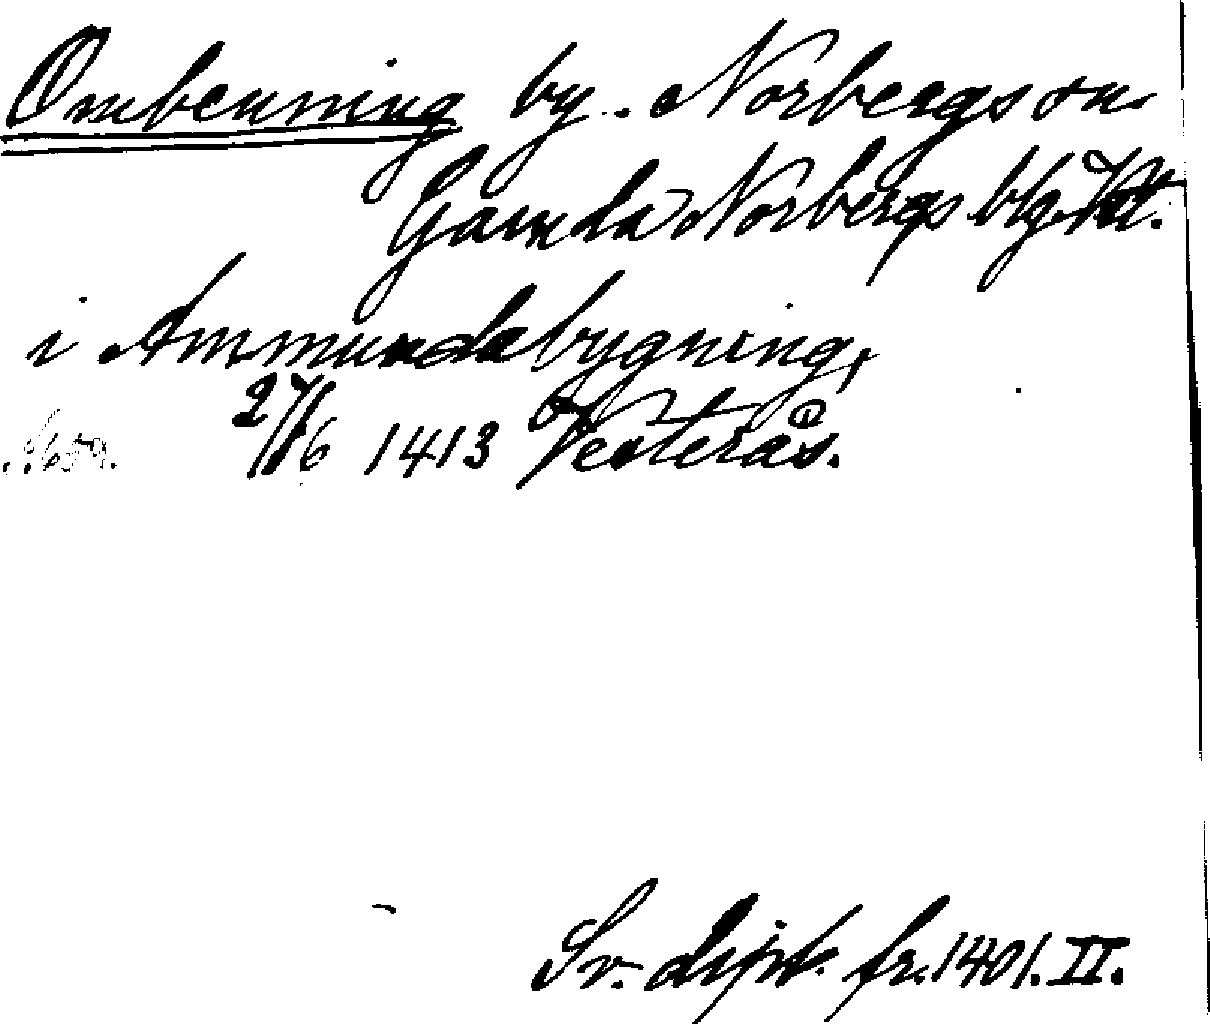 Ombenning by. Norbergs sn.
Gamla Norbergs blg. Vstm.
i Ammundabygning,
27/6 1413 Vesterås.
Sv. dipl. fr. 1401. II.